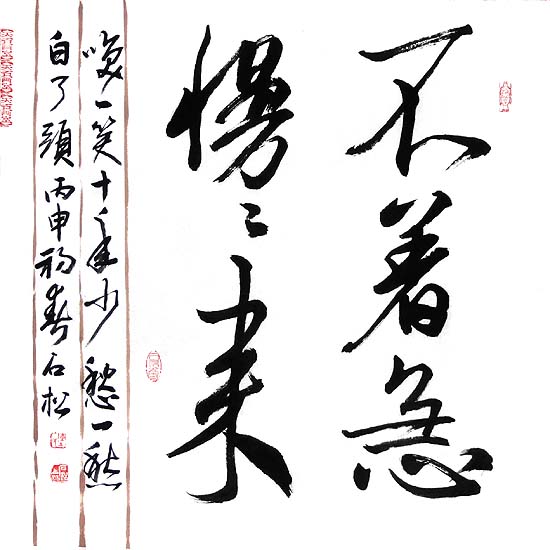 不着急
慢〻来
笑一笑十年少愁一愁
白了頭丙申初春石松